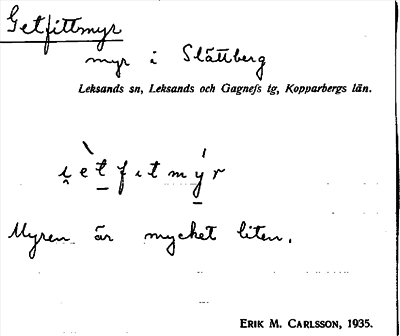 Getfittmyr
myr i Slättberg
Leksands sn, Leksands och Gagnefs tg, Kopparbergs län.
i̯è̖̖t̠fɩtmý̠r
Myren är mycket liten.
ERIK M. CARLSSON, 1935.